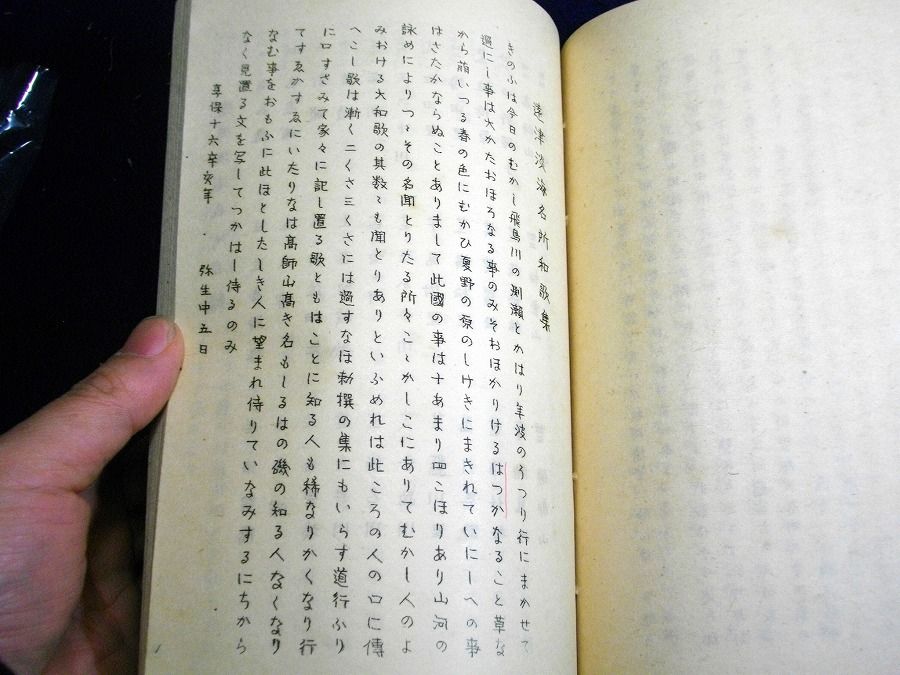 遠津淡海名所和歌集
きのふは今日のむかし飛鳥川の渕瀬とかはり年波のうつり行にまかせて
過にし事は大かたおほろなる事のみそおほかりけるはつかなること草な
から萠いつる春の色にむかひ夏野の原のしけきにまきれていにしへの事
はさたかならぬことありまして此國の事は十あまり四こほりあり山河の
詠めによりつゝその名聞とりたる所々こゝかしこにありてむかし人のよ
みおける大和歌の其数々も聞とりありといふめれは此ころの人の口に傳
へこし歌は漸く二くさ三くさには過すなほ勅撰の集にもいらす道行ふり
に口すさみて家々に記し置る歌ともはことに知る人も稀なりかくなり行
てすゑかすゑにいたりなは髙師山髙き名もしるはの磯の知る人なくなり
なむ事をおもふに此ほとしたしき人に望まれ侍りていなみするにちから
なく見置る文を写してつかはし侍るのみ
享保十六辛亥年　弥生中五日